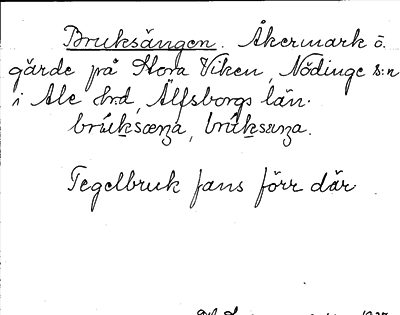 Bruksängen. Åkermark o.
gärde på Stora Viken, Nödinge s:n
i Ale hrd, Älfsborgs län.
Tegelbruk fans förr där